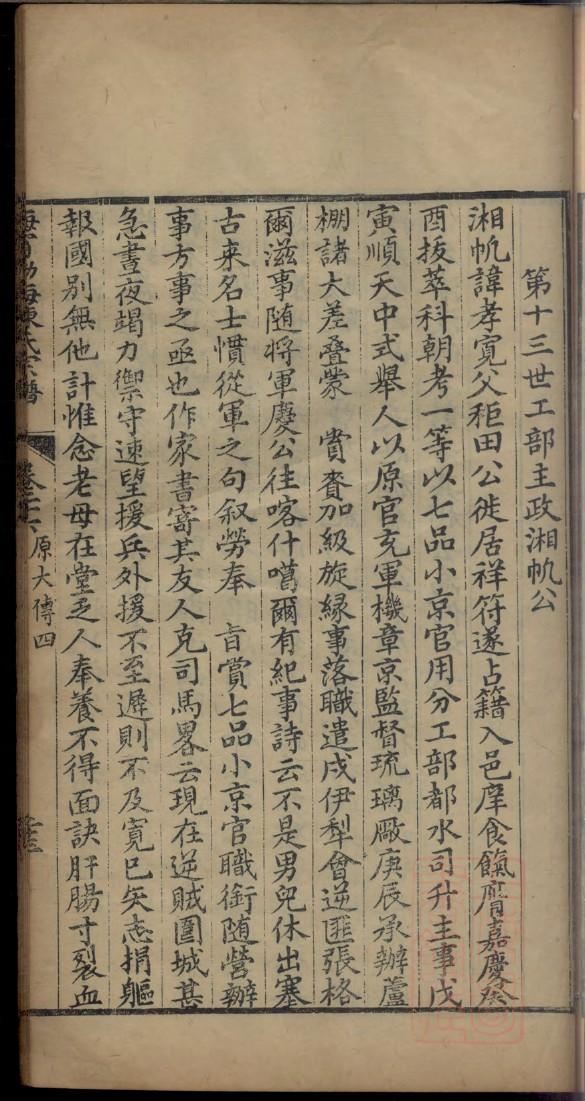 第十三世工部主政湘帆公
湘帆諱孝寛父秬田公徙居祥符遂占籍入邑庠食餼膺嘉慶癸
酉拔萃科朝考一等以七品小京官用分工部都水司升主事戊
寅順天中式舉人以原官充軍機章京監督琉璃厰庚辰承辦蘆
棚諸大差叠蒙　賞賚加級旋縁事落職遣戍伊犁會逆匪張格
爾滋事随将軍慶公往喀什噶爾有紀事詩云不是男兒休出塞
古来名士慣從軍之句叙勞奉　旨賞七品小京官職銜随營辦
事方事之亟也作家書寄其友人克司馬畧云現在逆賊圍城甚
急晝夜竭力禦守速望援兵外援不至遲則不及寛已矢志捐軀
報國别無他計惟念老母在堂乏人奉養不得面訣肝腸寸裂血
海寧渤海陳氏宗譜　卷二十六　原大傳四